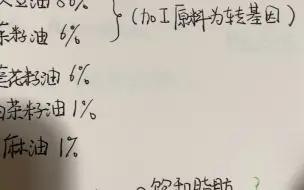 豆油 } (加工原料为转基因)
菜籽油 6%
花籽油 6%
菜籽油 1%
麻油 1%
饱和脂肪 ?